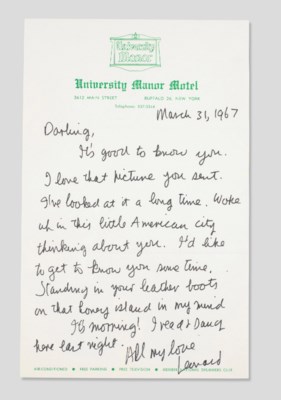 University
Manor
University Manor Motel
3612 MAIN STREET BUFFALO 26, NEW YORK
Telephone
March 31, 1967
Darling,
It's good to know you.
I love that picture you sent.
I've looked at it a long time. Woke
up in this little American city
thinking about you. I'd like
to get to know you some time.
Standing in your leather boots
on that honey island in my mind
It's morning! I read & Danced
here last night.
All my love
Leonard
AIR-CONDITIONED • FREE PARKING • FREE TELEVISION •